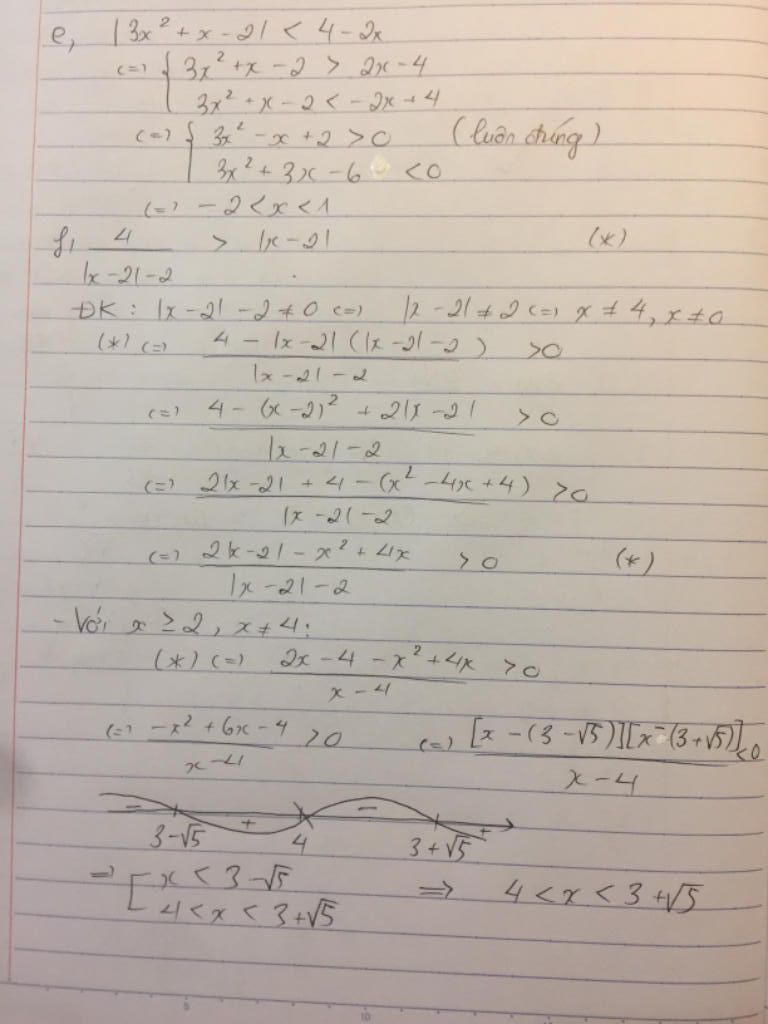 e, |3x² + x - 2| < 4 - 2x
(=) { 3x² + x - 2 > 2x - 4
3x² + x - 2 < -2x + 4
(=) { 3x² - x + 2 > 0 (luôn đúng)
3x² + 3x - 6 < 0
(=) -2 < x < 1
f, 4 / (|x - 2| - 2) > |x - 2| (*)
ĐK : |x - 2| - 2 ≠ 0 (=) |x - 2| ≠ 2 (=) x ≠ 4, x ≠ 0
(*) (=) (4 - |x - 2| (|x - 2| - 2)) / (|x - 2| - 2) > 0
(=) (4 - (x - 2)² + 2|x - 2|) / (|x - 2| - 2) > 0
(=) (2|x - 2| + 4 - (x² - 4x + 4)) / (|x - 2| - 2) > 0
(=) (2|x - 2| - x² + 4x) / (|x - 2| - 2) > 0 (*)
- Với x ≥ 2, x ≠ 4 :
(*) (=) (2x - 4 - x² + 4x) / (x - 4) > 0
(=) (-x² + 6x - 4) / (x - 4) > 0 (=) [x - (3 - √5)][x - (3 + √5)] / (x - 4) < 0
- + - +
3 - √5 4 3 + √5
=> [ x < 3 - √5 => 4 < x < 3 + √5
4 < x < 3 + √5